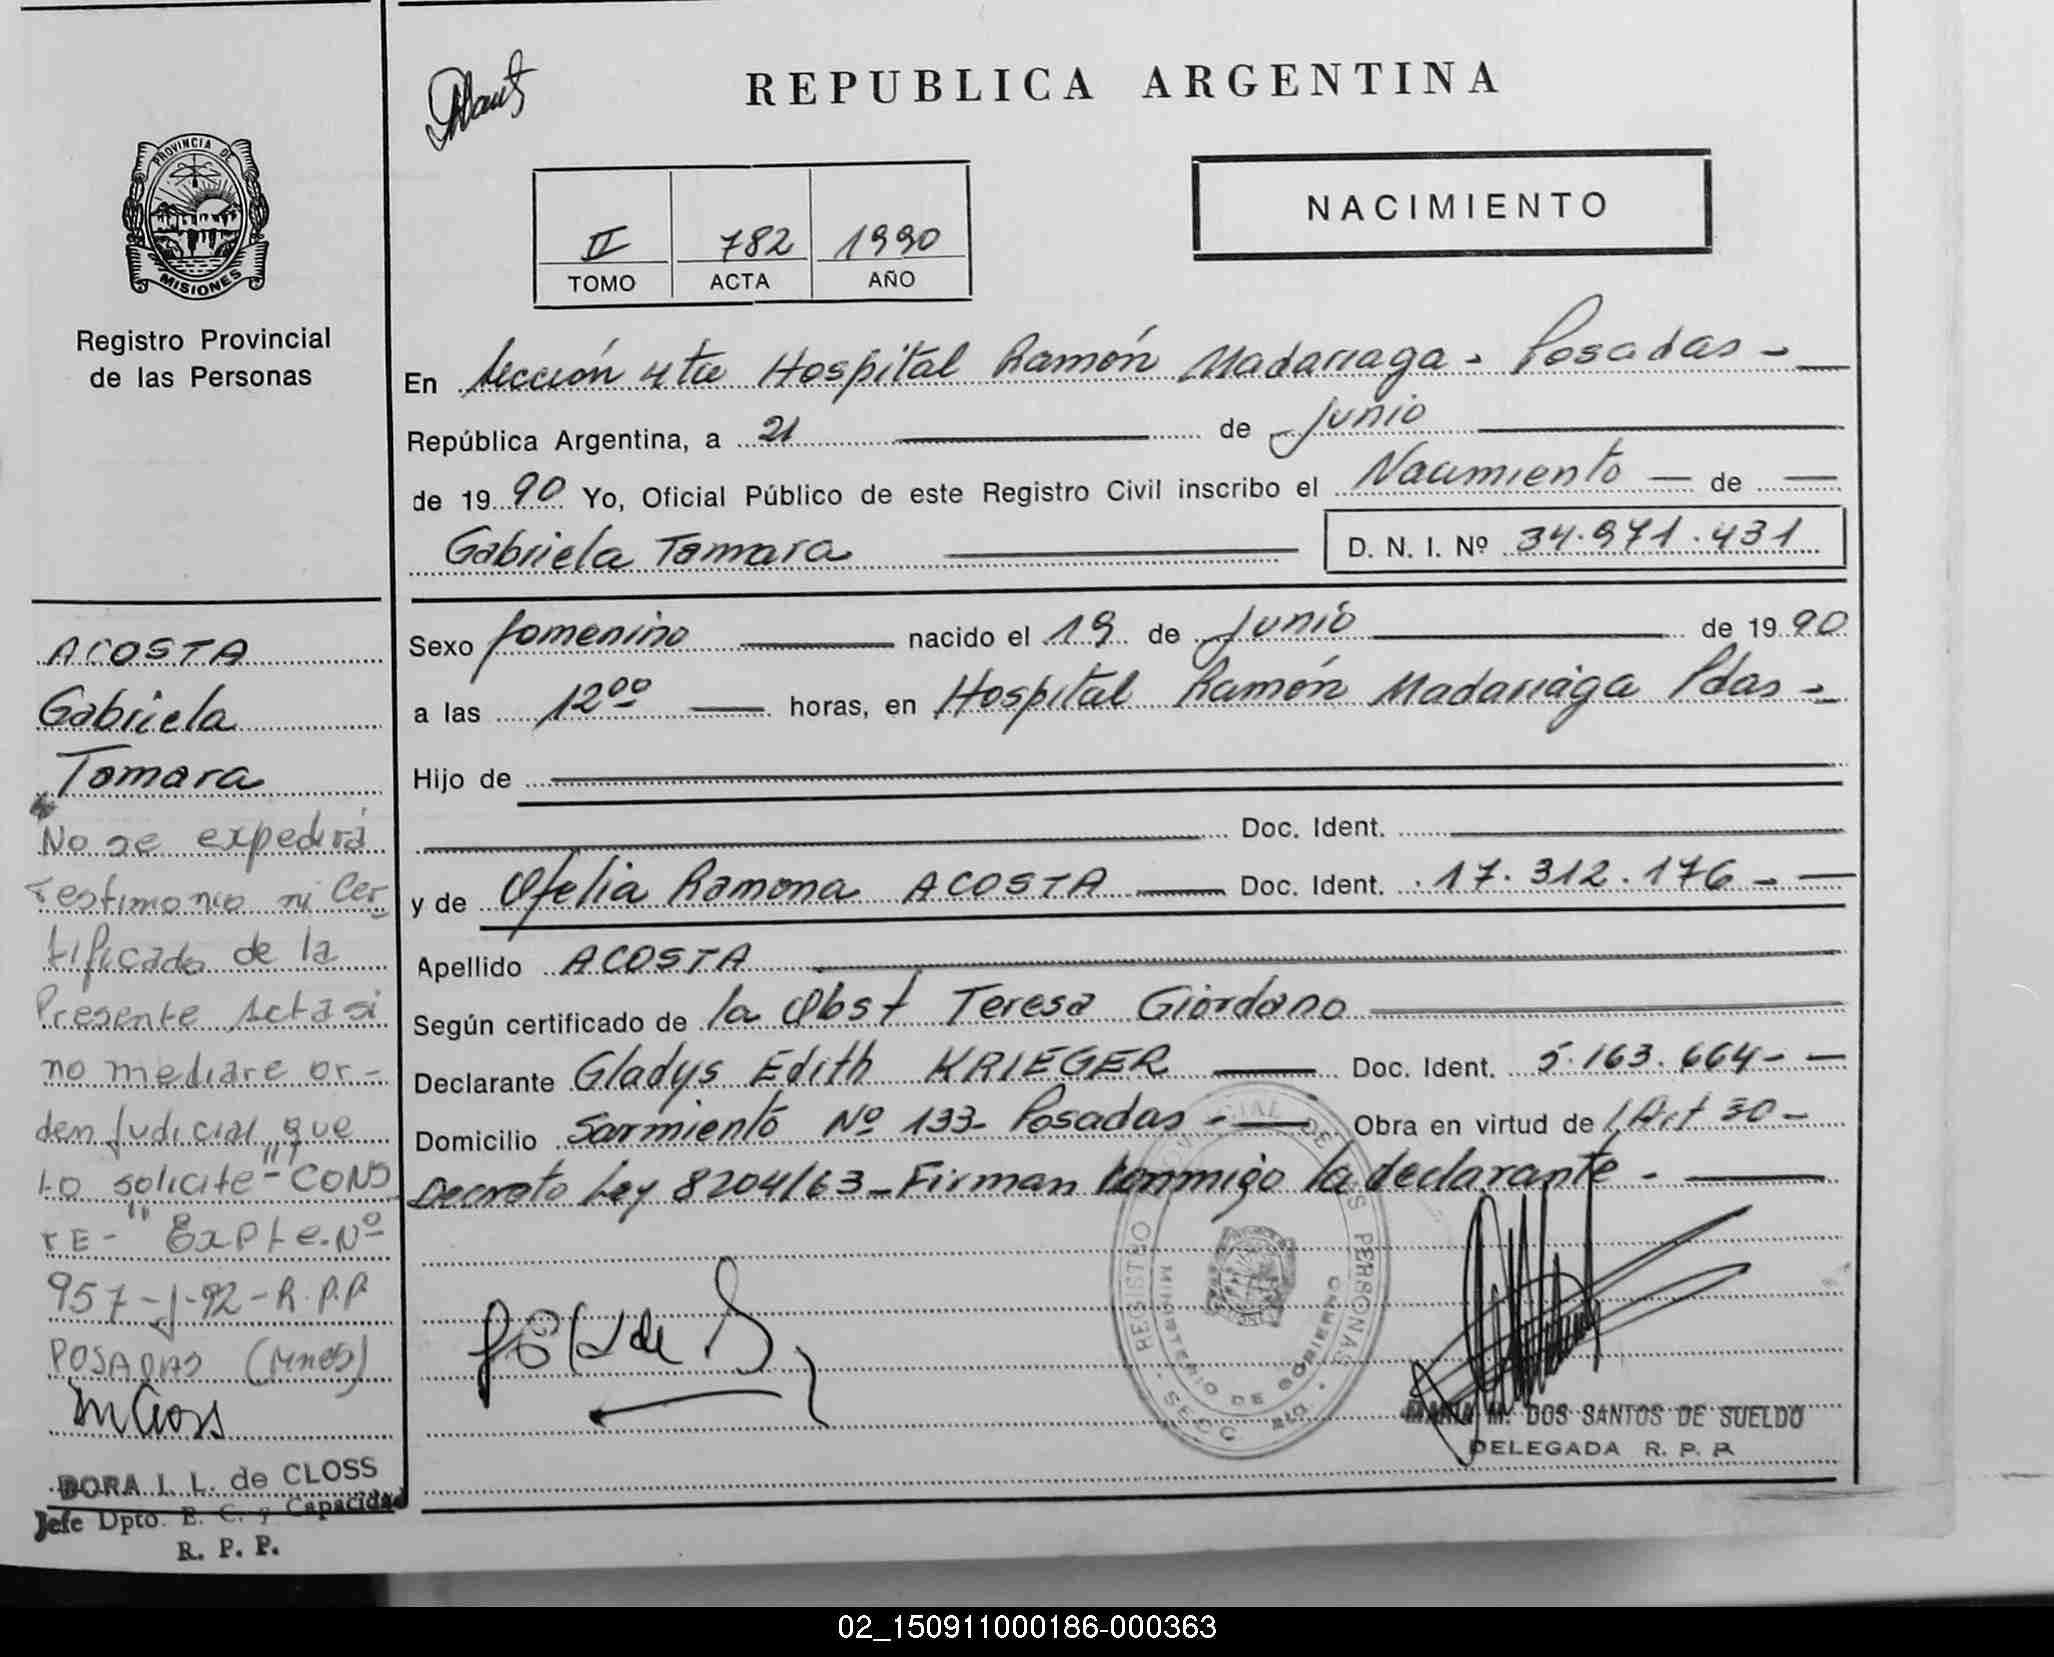 REPUBLICA ARGENTINA
PROVINCIA DE
MISIONES
Registro Provincial
de las Personas
NACIMIENTO
II 782 1990
TOMO ACTA AÑO
En Sección 4ta Hospital Ramón Madariaga - Posadas -
República Argentina, a 21 de Junio
de 1990 Yo, Oficial Público de este Registro Civil inscribo el Nacimiento de
Gabriela Tamara D. N. I. Nº 34.971.431
Sexo femenino nacido el 19 de Junio de 1990
a las 12 00 horas, en Hospital Ramón Madariaga Pdas -
Hijo de
Doc. Ident.
y de Ofelia Ramona ACOSTA Doc. Ident. 17.312.176 -
Apellido ACOSTA
Según certificado de la Obst Teresa Giordano
Declarante Gladys Edith KRIEGER Doc. Ident. 5.163.664 -
Domicilio Sarmiento Nº 133 - Posadas - Obra en virtud de Art 30 -
Decreto Ley 8204/63 - Firman conmigo la declarante -
ACOSTA
Gabriela
Tamara
No se expedirá
Testimonio ni Cer
tificado de la
Presente Acta si
no mediare or-
den Judicial que
Lo solicite - "CONS
TE -" Expte. Nº
957-J-92-R.P.P.
POSADAS (Mnes)
DORA I. L. de CLOSS
Jefe Dpto. E. C. y Capacidad
R. P. P.
REGISTRO PROVINCIAL DE LAS PERSONAS
MINISTERIO DE GOBIERNO
SECC. 4ta
MARIA M. DOS SANTOS DE SUELDO
DELEGADA R. P. P.
02_150911000186-000363